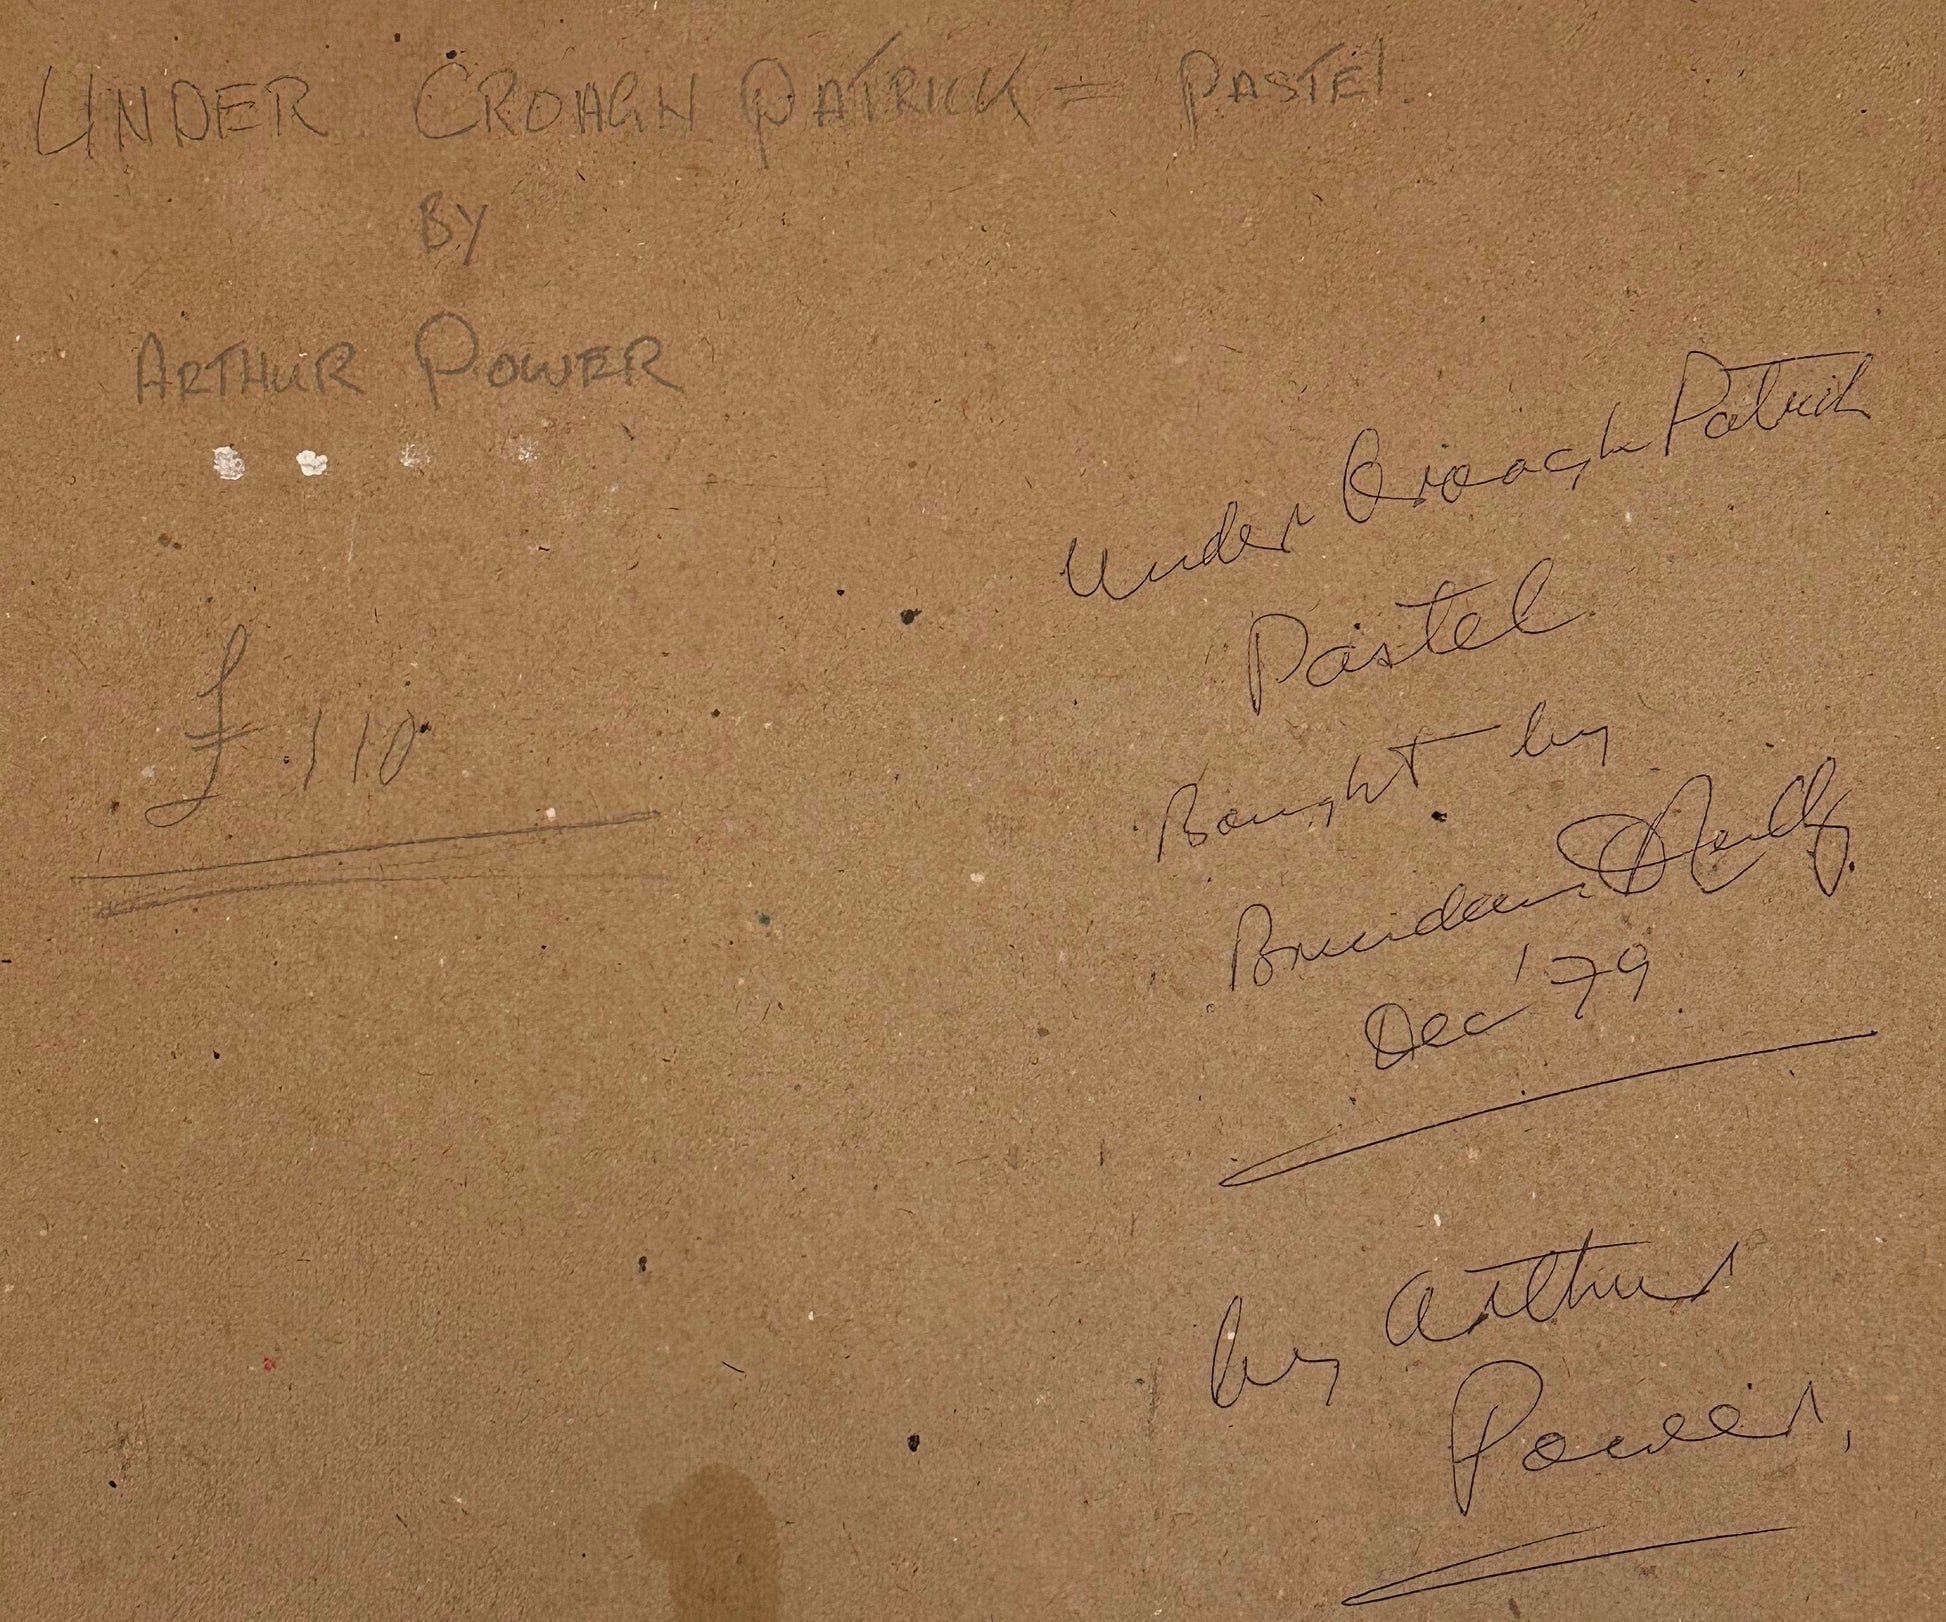 UNDER CROAGH PATRICK = PASTEL.
BY
ARTHUR POWER
£110
Under Croagh Patrick
Pastel
Bought by
Brendan O Reilly
Dec '79
by Arthur
Power,